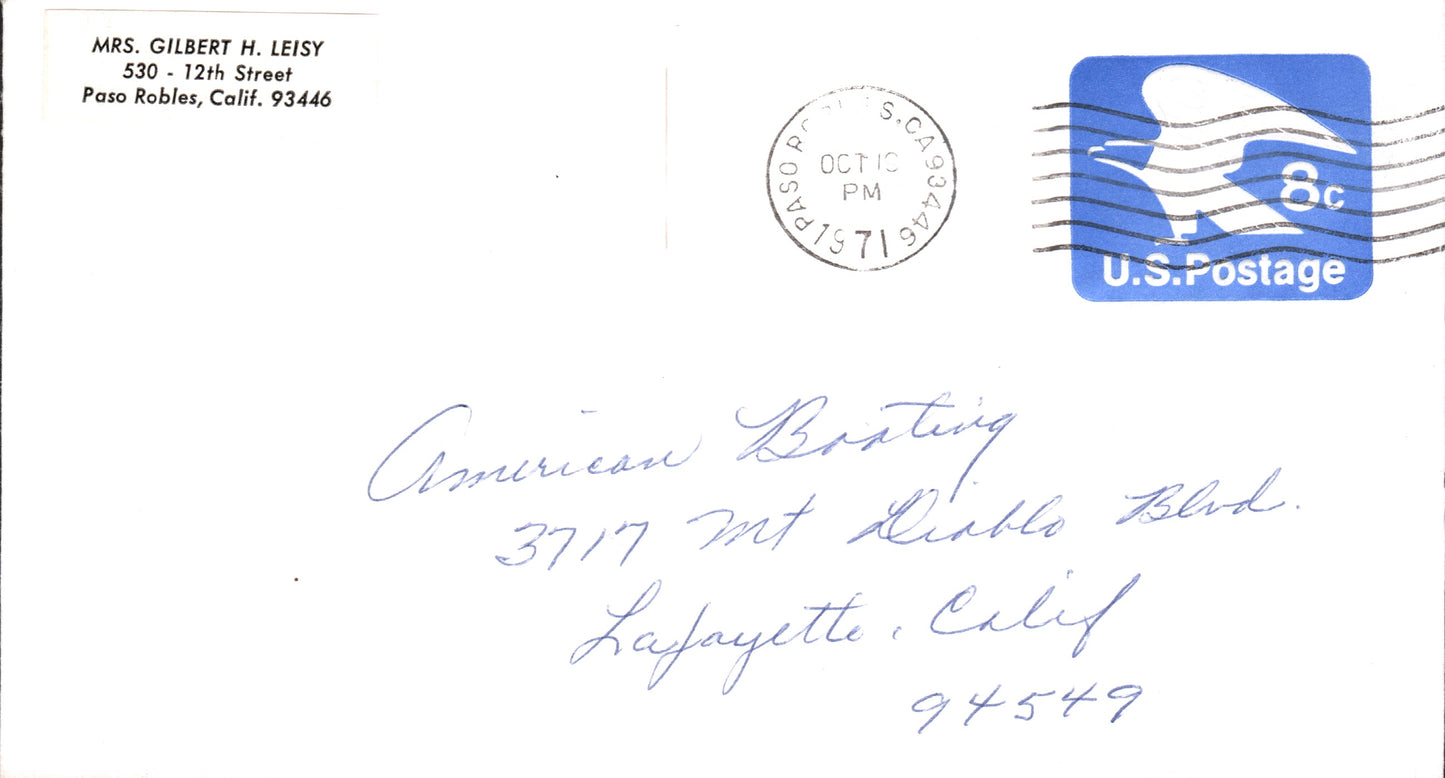 MRS. GILBERT H. LEISY
530 - 12th Street
Paso Robles, Calif. 93446
PASO ROBLES, CA 93446
OCT 10
PM
1971
8c
U.S. Postage
American Boating
3717 Mt Diablo Blvd.
Lafayette, Calif
94549